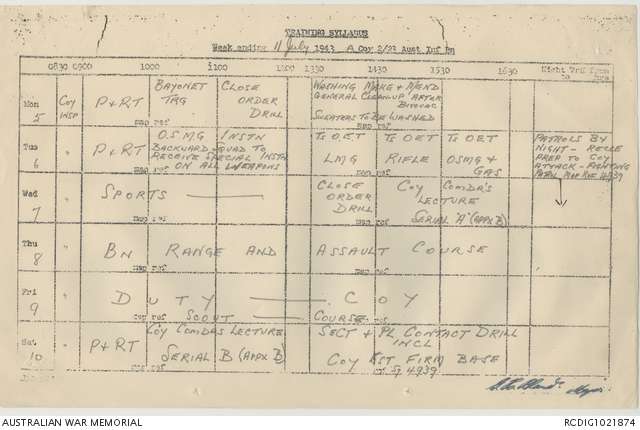 TRAINING SYLLABUS
Week ending 11 July 1943 A Coy 2/23 Aust Inf Bn
0830 0900 1000 1100 1200 1330 1430 1530 1630
Mon 5
Coy INSP
P & RT
BAYONET TRG
CLOSE ORDER DRILL
WASHING MAKE & MEND
GENERAL CLEANUP AFTER
BIVOUAC
SWEATERS TO BE WASHED
map ref
map ref
Tue 6
"
P & RT
O.S.M.G INSTN
BACKWARD SQUAD TO
RECEIVE SPECIAL INSTN
ON ALL WEAPONS
Ts OET LMG
Ts OET RIFLE
Ts OET OSMG & GAS
PATROLS BY
NIGHT - RECCE
PREP TO COY
ATTACK - FIGHTING
PATROL MAP REF
map ref
Wed 7
"
SPORTS
CLOSE ORDER DRILL
COY COMDR'S
LECTURE
SERIAL 'A' (APPX B)
map ref
map ref
Thu 8
"
BN RANGE AND ASSAULT COURSE
map ref
map ref
Fri 9
"
DUTY COY
SCOUT COURSE
map ref
map ref
Sat 10
"
P & RT
COY COMDRS LECTURE
SERIAL B (APPX B)
SECT & PL CONTACT DRILL
INCL
COY EST FIRM BASE
4939
AUSTRALIAN WAR MEMORIAL
RCDIG1021874